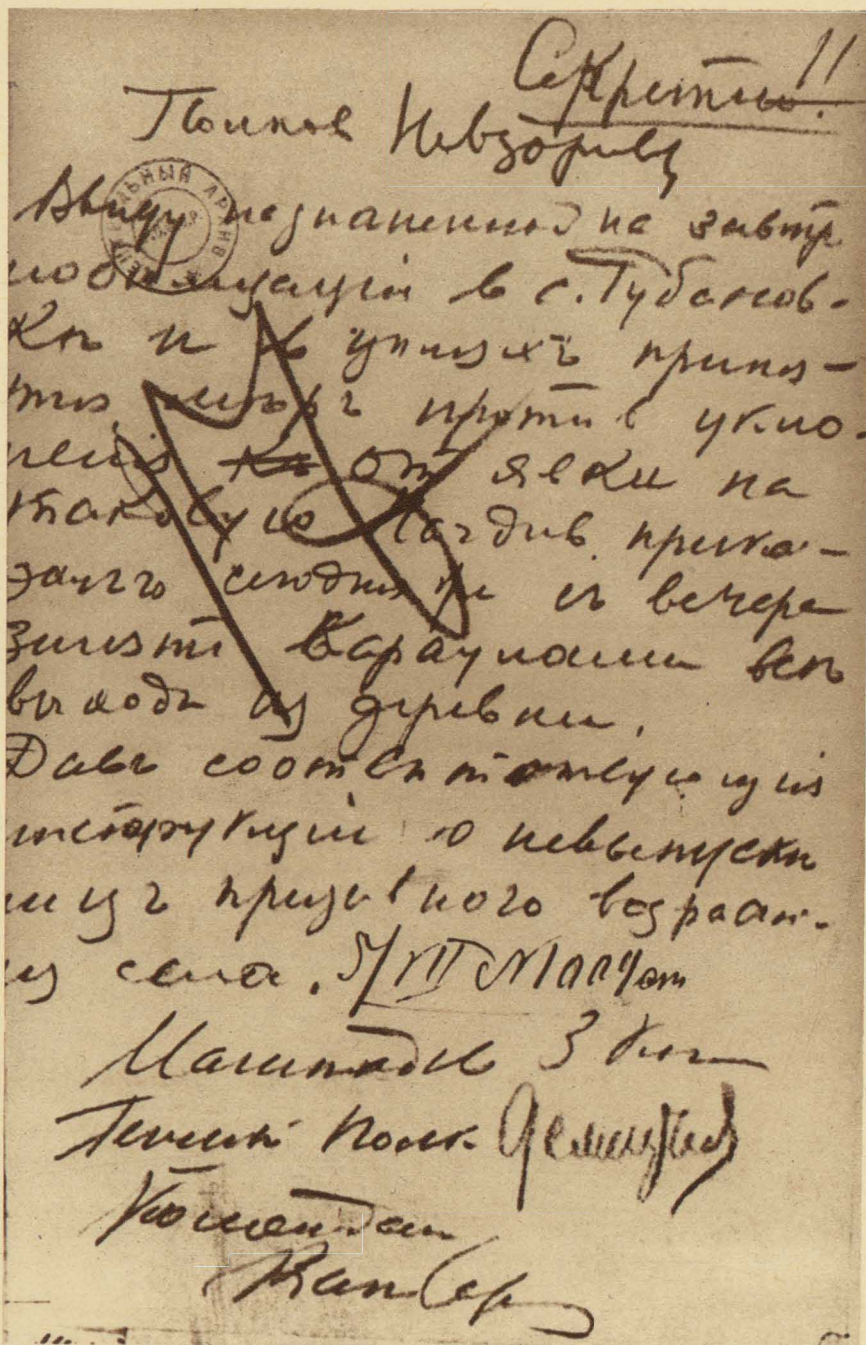 Секретно!!
Полков Невзорову
Ввиду назначенной на завтр
мобилизаціи в с. Губанов-
кѣ и в цѣляхъ приня-
тія мѣръ против укло-
ненія от явки на
таковую Начдив прика-
залъ сегодня же съ вечера
занять караулами всѣ
выходы из деревни.
Давъ соответствующія
инструкціи о невыпускѣ
лицъ призывного возраст.
из села. 5/VII
Наштадив 3
Геншт. Полк.